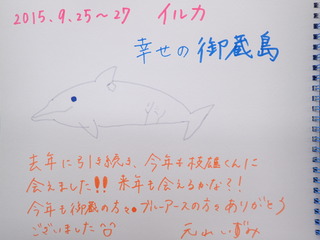 2015.9.25〜27 イルカ
幸せの御蔵島
去年に引き続き、今年も枝雄くんに
会えました!! 来年も会えるかな?!
今年も御蔵の方々、ブルーアースの方々ありがとう
ございました
元山いずみ